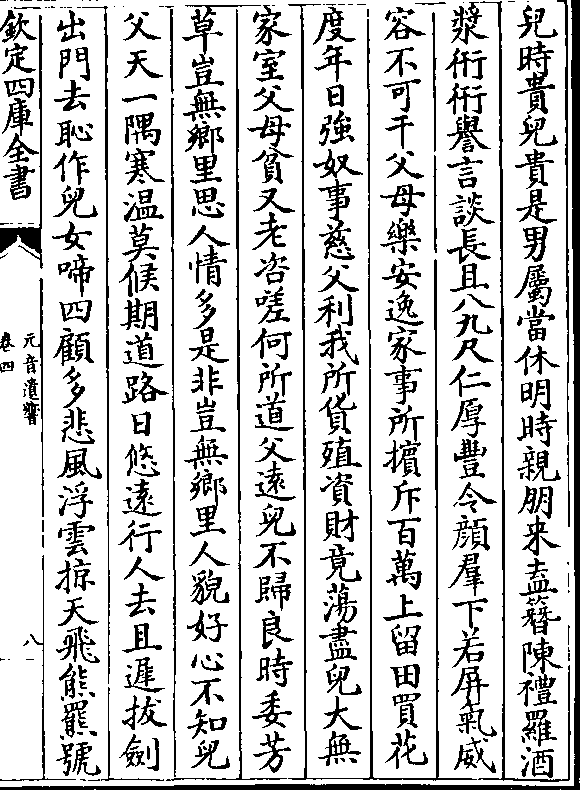 兒時貴兒貴是男屬當休明時親朋来盍簮陳禮羅酒
漿衎衎譽言談長且八九尺仁厚豐令顔羣下若屏氣威
容不可干父母樂安逸家事所擯斥百萬上留田買花
度年日強奴事慈父利我所貨殖資財竟蕩盡兒大無
家室父母貧又老咨嗟何所道父遠兒不歸良時委芳
草豈無鄉里思人情多是非豈無鄉里人貌好心不知兒
父天一隅寒温莫候期道路日悠遠行人去且遲拔劍
出門去恥作兒女啼四顧多悲風浮雲掠天飛熊羆號
欽定四庫全書
元音遺響
卷四
八